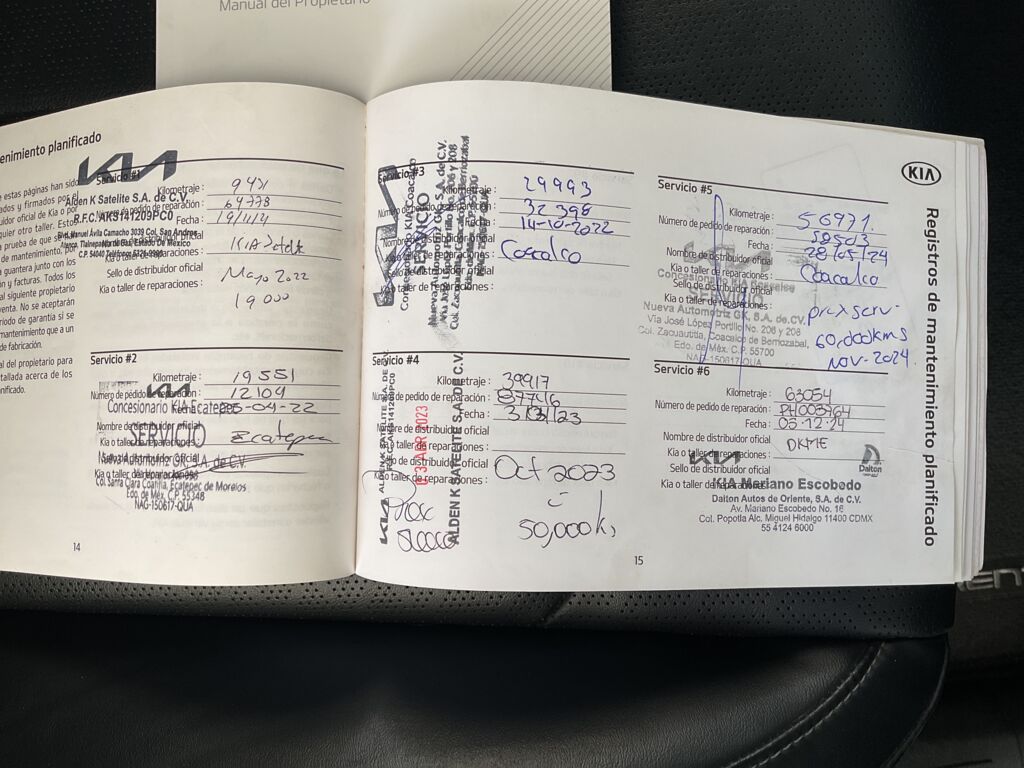 Manual del Propietario
enimiento planificado
e estas páginas han sido
ados y firmados por el
buidor oficial de Kia o por
quier otro taller. Estos
a prueba de que se
de mantenimiento, por
a guantera junto con los
n y facturas. Todos los
al siguiente propietario
venta. No se aceptarán
ríodo de garantía si se
mantenimiento que a un
de fabricación.
al del propietario para
tallada acerca de los
nificado.
KIA
Servicio #1
Alden K Satelite S.A. de C.V.
R.F.C. AKS141209PC0
Blvd. Manuel Ávila Camacho 3039 Col. San Andres
Atenco, Tlalnepantla de Baz, Estado De México
C.P. 54040
Kilometraje :
Número de pedido de reparación : 64778
Fecha : 19/11/21
Nombre de distribuidor oficial
Kia o taller de reparaciones : KIA Satelite
Sello de distribuidor oficial
Kia o taller de reparaciones :
Mayo 2022
19 000
Servicio #2
KIA
Kilometraje : 19551
Número de pedido de reparación : 12109
Concesionario KIA Ecatepec
Fecha : 25-04-22
Nombre de distribuidor oficial
SERVICIO
Kia o taller de reparaciones : Ecatepec
Sello de distribuidor oficial
Nueva Automotriz GK, S.A. de C.V.
Kia o taller de reparaciones
Ecatepec de Morelos
Edo. de Méx. C.P. 55348
NAG-150617-QUA
14
Servicio #3
Kilometraje : 29993
Número de pedido de reparación : 32398
Fecha : 14-10-2022
Nombre de distribuidor oficial
Kia o taller de reparaciones : Coacalco
Sello de distribuidor oficial
Kia o taller de reparaciones :
KIA
Concesionario KIA Coacalco
SERVICIO
Nueva Automotriz GK, S.A. de C.V.
Vía José López Portillo No. 206 y 208
Col. Zacuautitla, Coacalco de Berriozabal
Edo. de Méx. C.P. 55700
NAG-150617-QUA
Servicio #4
Kilometraje : 39917
Número de pedido de reparación : 87746
Fecha :
Nombre de distribuidor oficial
Kia o taller de reparaciones :
Sello de distribuidor oficial
Kia o taller de reparaciones :
KIA ALDEN K SATELITE S.A. DE C.V.
13 ABR 2023
ALDEN K SATELITE S.A. DE C.V.
Oct 2023
ó
50,000 k,
Prox
50000
15
KIA
Servicio #5
Kilometraje : 56971.
Número de pedido de reparación : 52503
Fecha : 28/05/24
Nombre de distribuidor oficial
Kia o taller de reparaciones : Coacalco
Sello de distribuidor oficial
Kia o taller de reparaciones :
Concesionario KIA Coacalco
SERVICIO
Nueva Automotriz GK, S.A. de C.V.
Vía José López Portillo No. 206 y 208.
Col. Zacuautitla, Coacalco de Berriozabal,
Edo. de Méx. C.P. 55700
NAG-150617-QUA
prox serv-
60,000kms
Nov-2024.
Servicio #6
Kilometraje : 63054
Número de pedido de reparación : PH003764
Fecha : 05.12.24
Nombre de distribuidor oficial
Kia o taller de reparaciones : DKME
Sello de distribuidor oficial
Kia o taller de reparaciones :
KIA
Dalton
KIA Mariano Escobedo
Dalton Autos de Oriente, S.A. de C.V.
Av. Mariano Escobedo No. 16
Col. Popotla Alc. Miguel Hidalgo 11400 CDMX
55 4124 6000
Registros de mantenimiento planificado